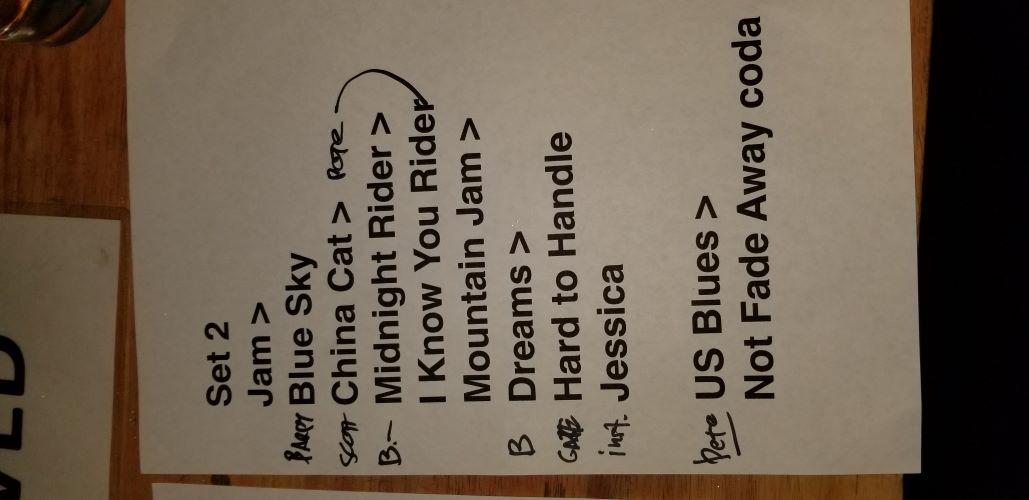 Set 2
Jam >
Blue Sky
SCOTT China Cat > Pete
B.- Midnight Rider >
I Know You Rider
Mountain Jam >
B Dreams >
Hard to Handle
inst. Jessica
Pete US Blues >
Not Fade Away coda